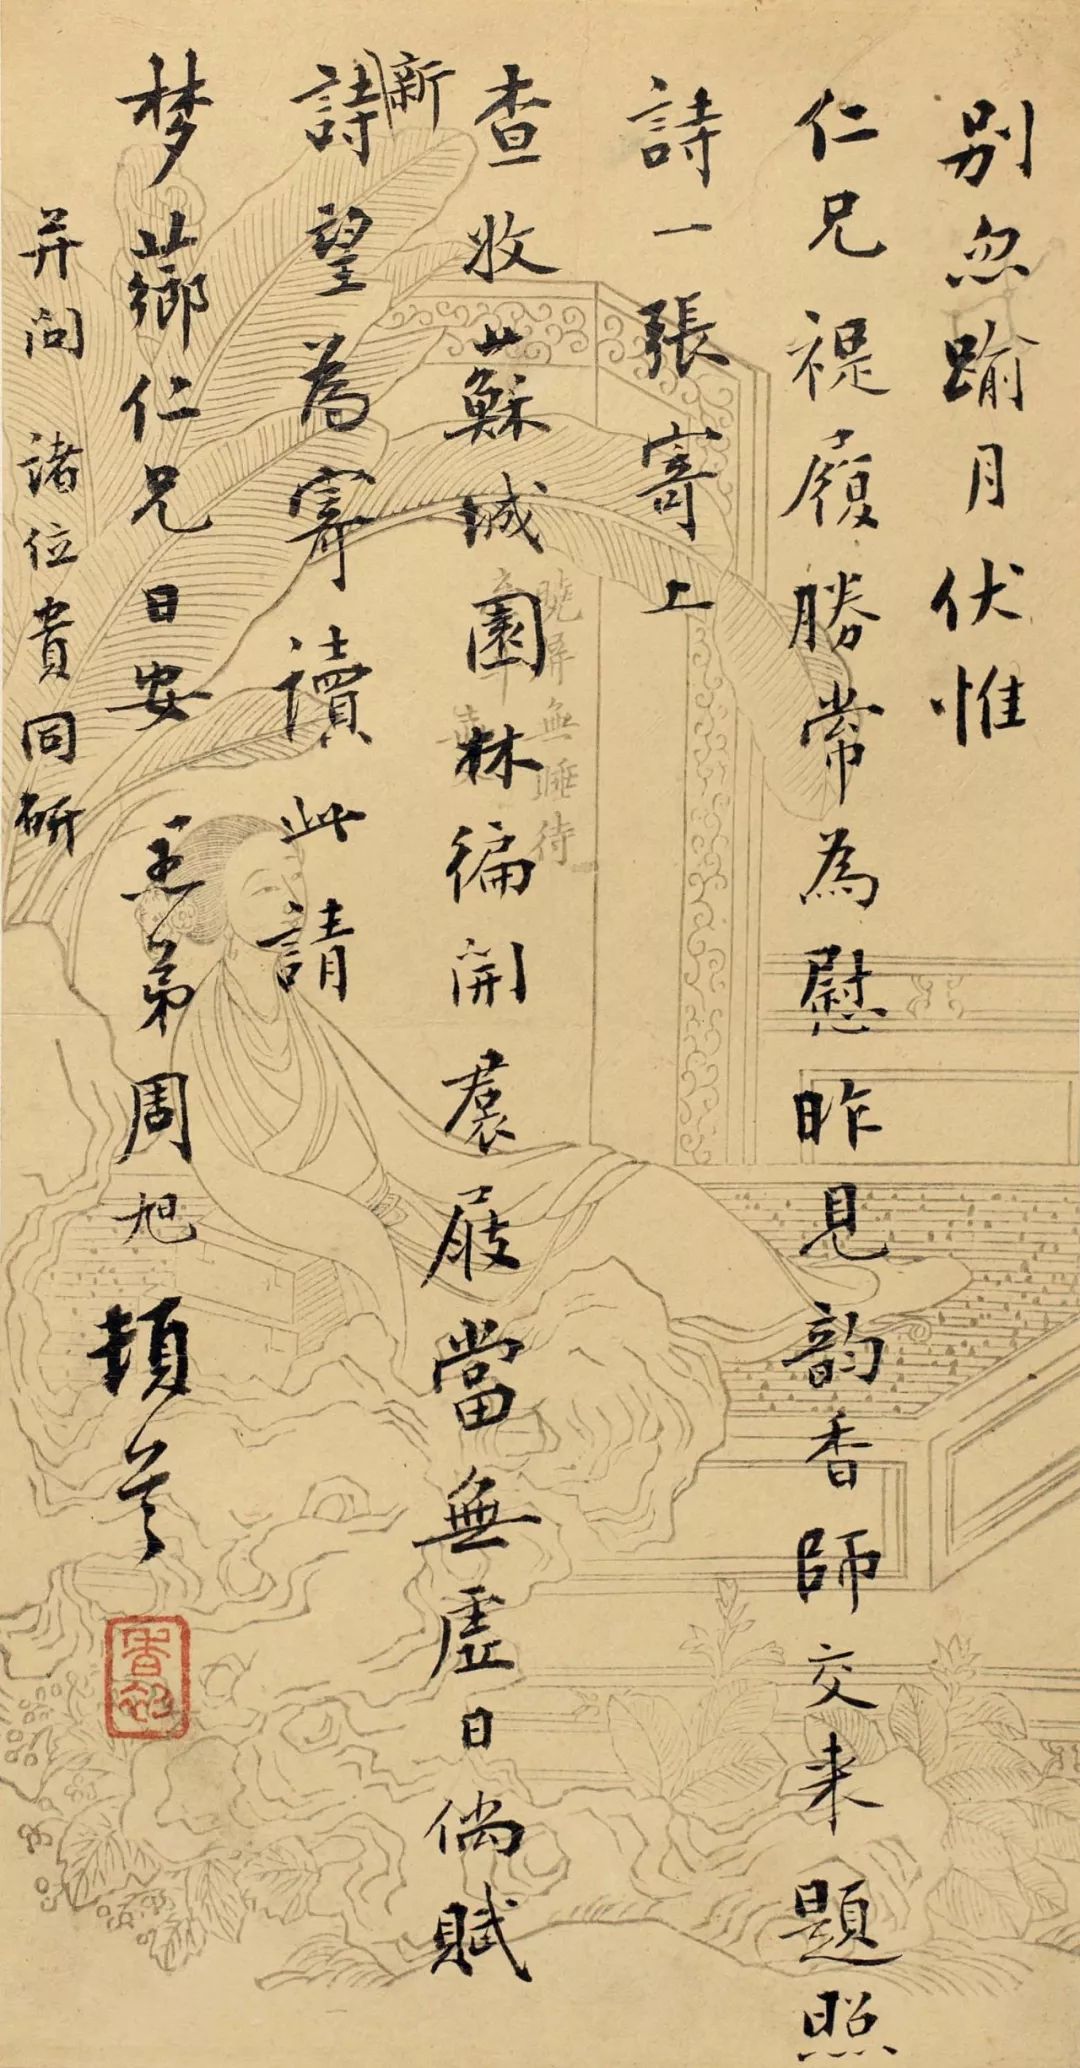 别忽踰月伏惟
仁兄禔履勝常為慰昨見韵香師交来題照
詩一張寄上
查收蘇城園林徧開裠屐當無虚日倘賦
新
詩望為寄讀此請
梦薌仁兄日安 弟周旭頓首
并問 諸位貴同研
曉屏無睡待